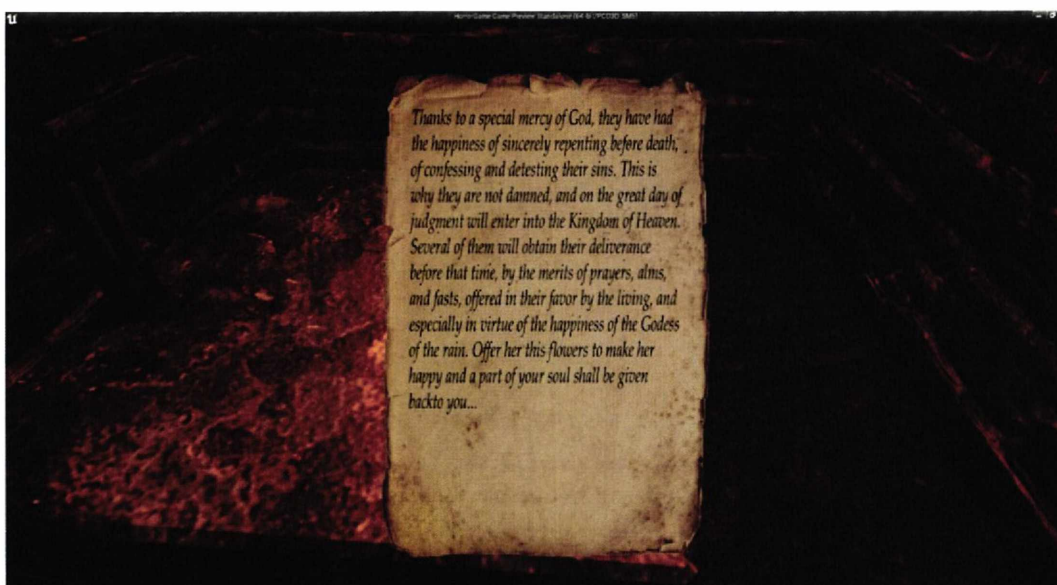 HorrorGame Game Preview Standalone (64-bit/PCD3D_SM5)
Thanks to a special mercy of God, they have had
the happiness of sincerely repenting before death,
of confessing and detesting their sins. This is
why they are not damned, and on the great day of
judgment will enter into the Kingdom of Heaven.
Several of them will obtain their deliverance
before that time, by the merits of prayers, alms,
and fasts, offered in their favor by the living, and
especially in virtue of the happiness of the Godess
of the rain. Offer her this flowers to make her
happy and a part of your soul shall be given
backto you...